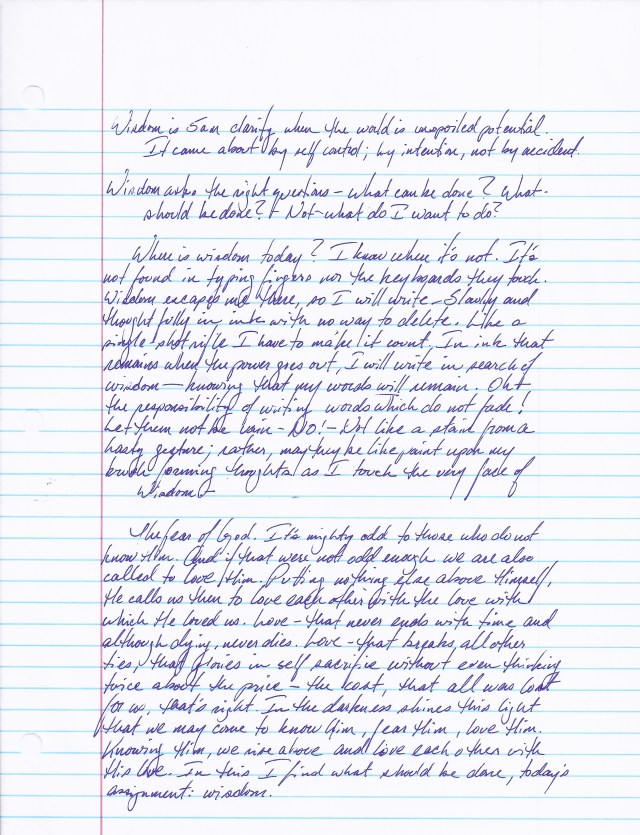 Wisdom is 5am clarity when the world is unspoiled potential.
It came about by self control; by intention, not by accident.
Wisdom asks the right questions – what can be done? What
should be done? Not – what do I want to do?
Where is wisdom today? I know where it's not. It's
not found in typing fingers nor the keyboards they touch.
Wisdom escapes me there, so I will write – Slowly and
thoughtfully in ink with no way to delete. Like a
single shot rifle I have to make it count. In ink that
remains when the power goes out, I will write in search of
wisdom — knowing that my words will remain. Oh!
the responsibility of writing words which do not fade!
Let them not be vain – No! – Not like a stain from a
hasty gesture; rather, may they be like paint upon my
brush forming thoughts as I touch the very face of
Wisdom
The fear of God. It's mighty odd to those who do not
know Him. And if that were not odd enough we are also
called to love Him. Putting nothing else above Himself,
He calls us then to love each other with the love with
which He loved us. Love – that never ends with time and
although dying, never dies. Love – that breaks all other
ties, that glories in self sacrifice without even thinking
twice about the price – the cost, that all was lost
for us, that's right. In the darkness shines this light
that we may come to know Him, fear Him, love Him.
Knowing Him, we rise above and love each other with
His love. In this I find what should be done, today's
assignment: wisdom.